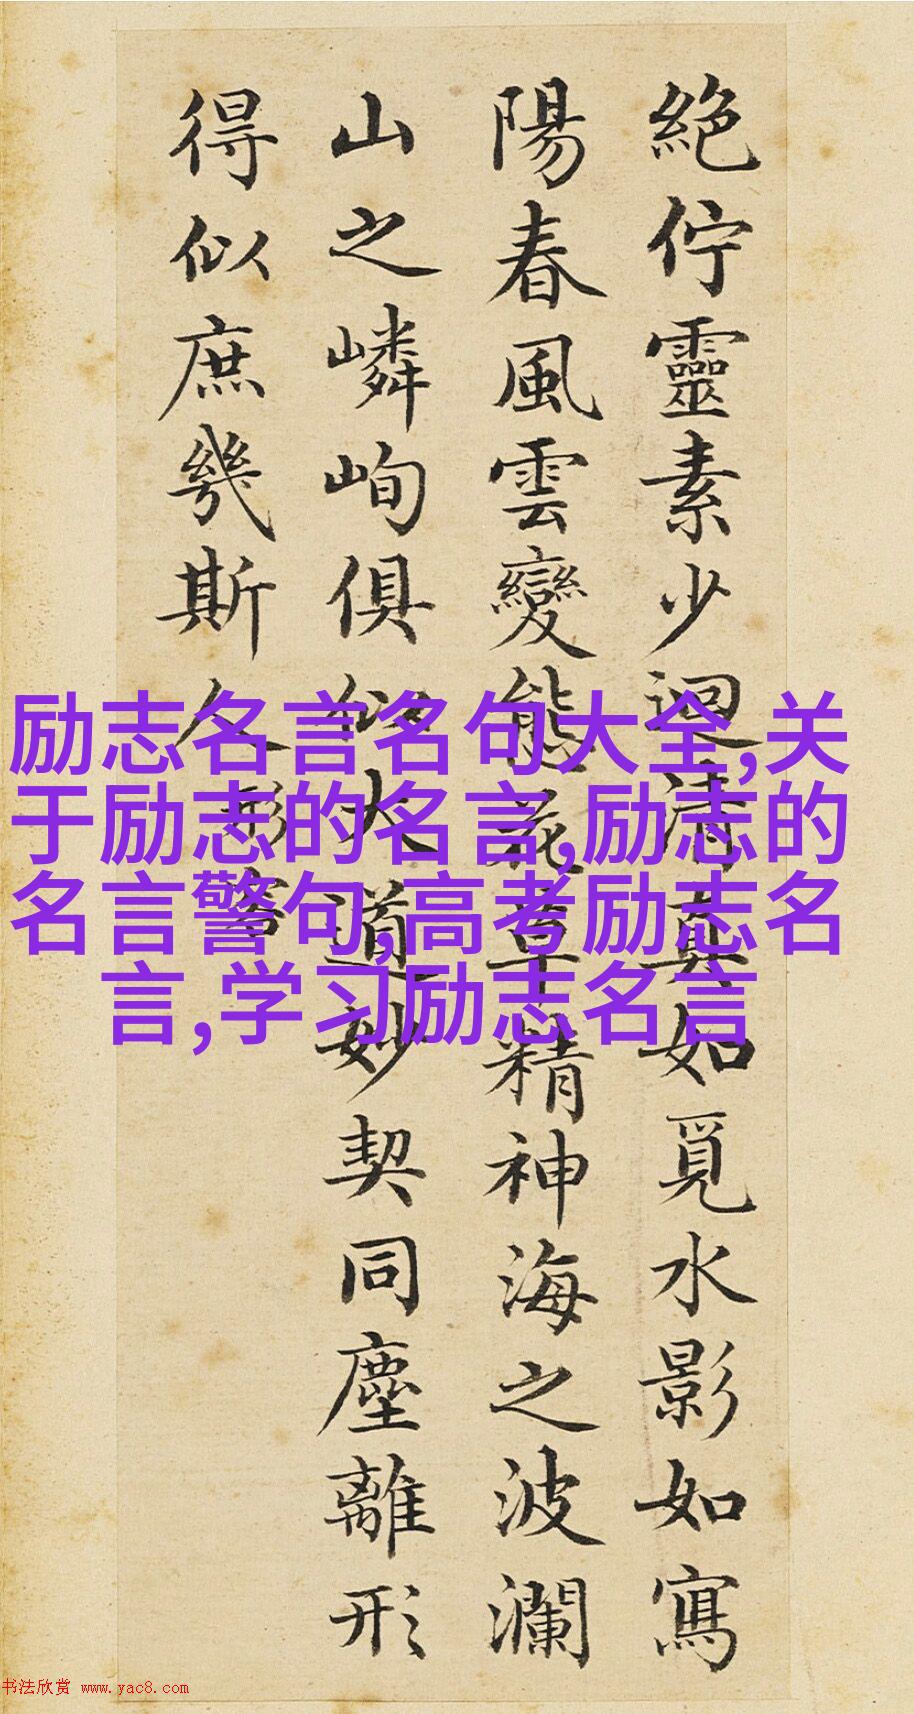 絕佇靈素少迴清真如覓水影如寫
陽春風雲變態花草精神海之波瀾
山之嶙峋俱似大道妙契同塵離形
得似庶幾斯人形容
励志名言名句大全,关
于励志的名言,励志的
名言警句,高考励志名
言,学习励志名言
书法欣赏 www.yac8.com